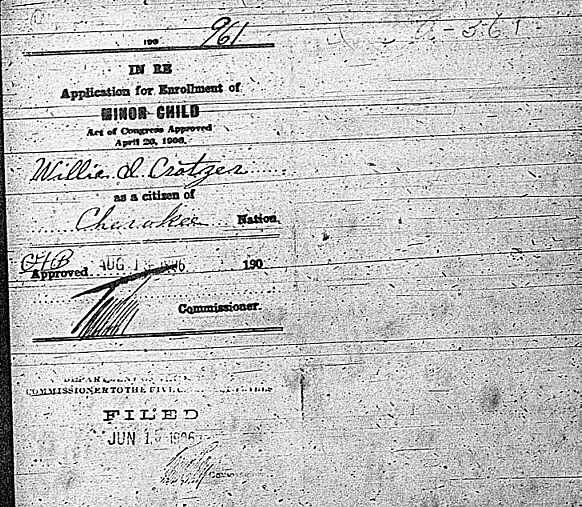 190 961
IN RE
Application for Enrollment of
MINOR CHILD
Act of Congress Approved
April 26, 1906.
Willie I. Crotzer
as a citizen of
Cherokee Nation.
Approved AUG 1906 190
Commissioner.
COMMISSIONER TO THE FIVE
FILED
JUN 1906